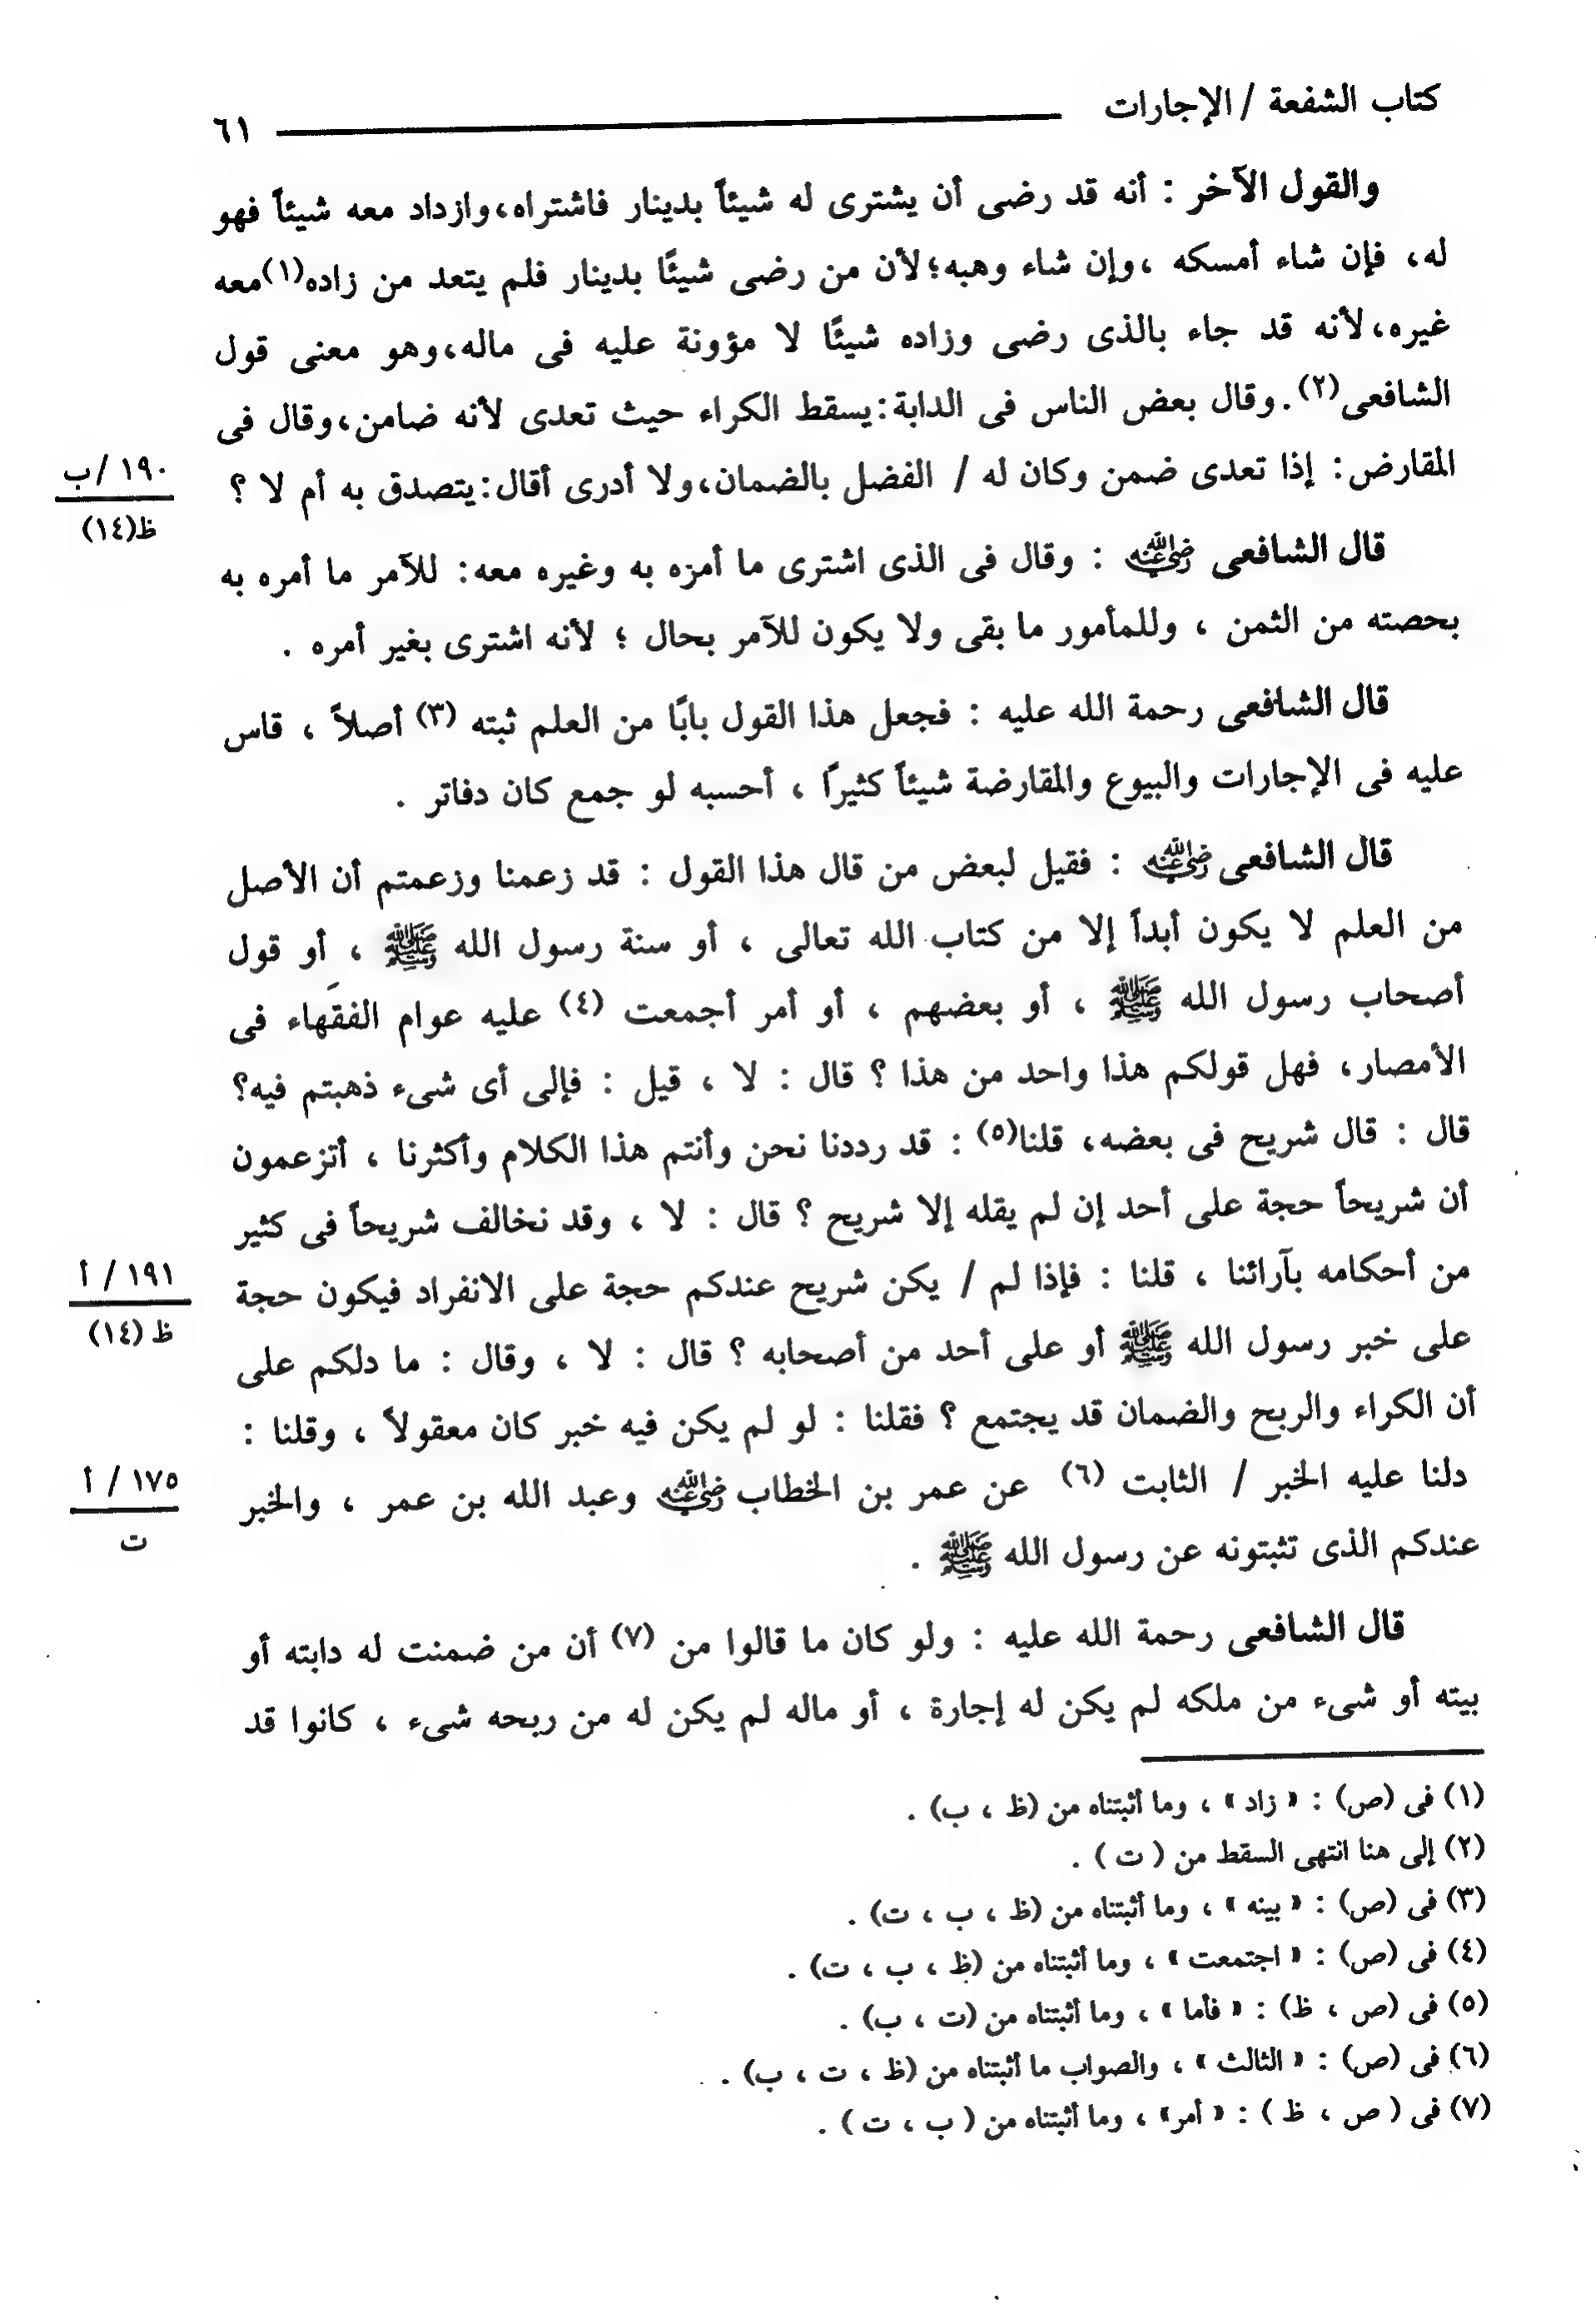 كتاب الشفعة / الإجارات ٦١
والقول الآخر : أنه قد رضى أن يشترى له شيئاً بدينار فاشتراه،وازداد معه شيئاً فهو
له، فإن شاء أمسكه ،وإن شاء وهبه؛لأن من رضى شيئًا بدينار فلم يتعد من زاده(١)معه
غيره،لأنه قد جاء بالذى رضى وزاده شيئًا لا مؤونة عليه فى ماله،وهو معنى قول
الشافعى(٢).وقال بعض الناس فى الدابة:يسقط الكراء حيث تعدى لأنه ضامن،وقال فى
المقارض: إذا تعدى ضمن وكان له / الفضل بالضمان،ولا أدرى أقال:يتصدق به أم لا ؟
١٩٠ /ب
ظ(١٤)
قال الشافعى رضي الله عنه : وقال فى الذى اشترى ما أمزه به وغيره معه: للآمر ما أمره به
بحصته من الثمن ، وللمأمور ما بقى ولا يكون للآمر بحال ؛ لأنه اشترى بغير أمره .
قال الشافعى رحمة الله عليه : فجعل هذا القول بابًا من العلم ثبته (٣) أصلاً ، قاس
عليه فى الإجارات والبيوع والمقارضة شيئاً كثيرًا ، أحسبه لو جمع كان دفاتر .
قال الشافعى رضي الله عنه : فقيل لبعض من قال هذا القول : قد زعمنا وزعمتم أن الأصل
من العلم لا يكون أبداً إلا من كتاب الله تعالى ، أو سنة رسول الله ﷺ ، أو قول
أصحاب رسول الله ﷺ ، أو بعضهم ، أو أمر أجمعت (٤) عليه عوام الفقهاء فى
الأمصار، فهل قولكم هذا واحد من هذا ؟ قال : لا ، قيل : فإلى أى شىء ذهبتم فيه؟
قال : قال شريح فى بعضه، قلنا(٥) : قد رددنا نحن وأنتم هذا الكلام وأكثرنا ، أتزعمون
أن شريحاً حجة على أحد إن لم يقله إلا شريح ؟ قال : لا ، وقد نخالف شريحاً فى كثير
من أحكامه بآرائنا ، قلنا : فإذا لم / يكن شريح عندكم حجة على الانفراد فيكون حجة
١٩١ / أ
ظ (١٤)
على خبر رسول الله ﷺ أو على أحد من أصحابه ؟ قال : لا ، وقال : ما دلكم على
أن الكراء والربح والضمان قد يجتمع ؟ فقلنا : لو لم يكن فيه خبر كان معقولاً ، وقلنا :
دلنا عليه الخبر / الثابت (٦) عن عمر بن الخطاب رضي الله عنه وعبد الله بن عمر ، والخبر
١٧٥ / أ
ت
عندكم الذى تثبتونه عن رسول الله ﷺ .
قال الشافعى رحمة الله عليه : ولو كان ما قالوا من (٧) أن من ضمنت له دابته أو
بيته أو شىء من ملكه لم يكن له إجارة ، أو ماله لم يكن له من ربحه شىء ، كانوا قد
(١) فى (ص) : « زاد » ، وما أثبتناه من (ظ ، ب) .
(٢) إلى هنا انتهى السقط من ( ت ) .
(٣) فى (ص) : « بينه » ، وما أثبتناه من (ظ ، ب ، ت) .
(٤) فى (ص) : « اجتمعت » ، وما أثبتناه من (ظ ، ب ، ت) .
(٥) فى (ص ، ظ) : « فأما » ، وما أثبتناه من (ت ، ب) .
(٦) فى (ص) : « الثالث » ، والصواب ما أثبتناه من (ظ ، ت ، ب) .
(٧) فى ( ص ، ظ ) : « أمر» ، وما أثبتناه من ( ب ، ت ) .